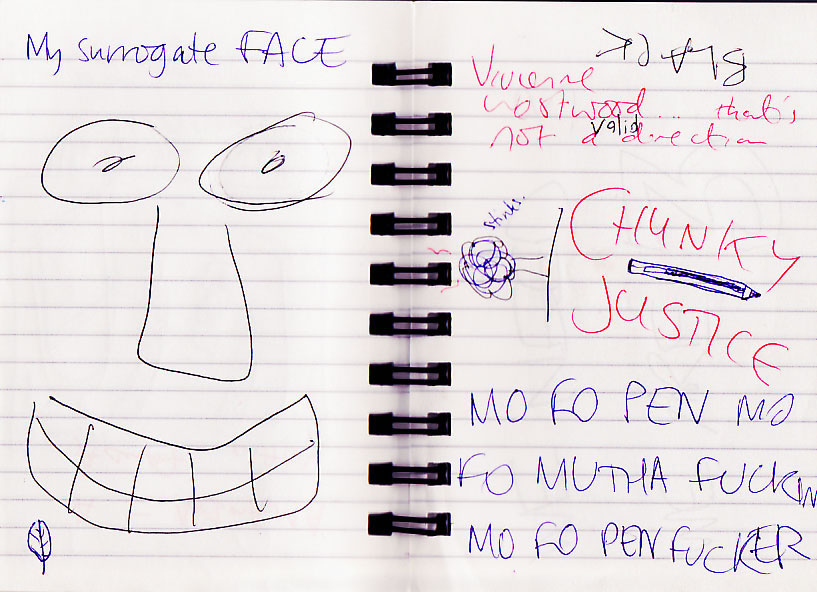 My surrogate FACE
Vivienne
westwood... that's
not a valid direction
stinks.
CHUNKY
JUSTICE
MO FO PEN MO
FO MUTHA FUCKIN
MO FO PEN FUCKER